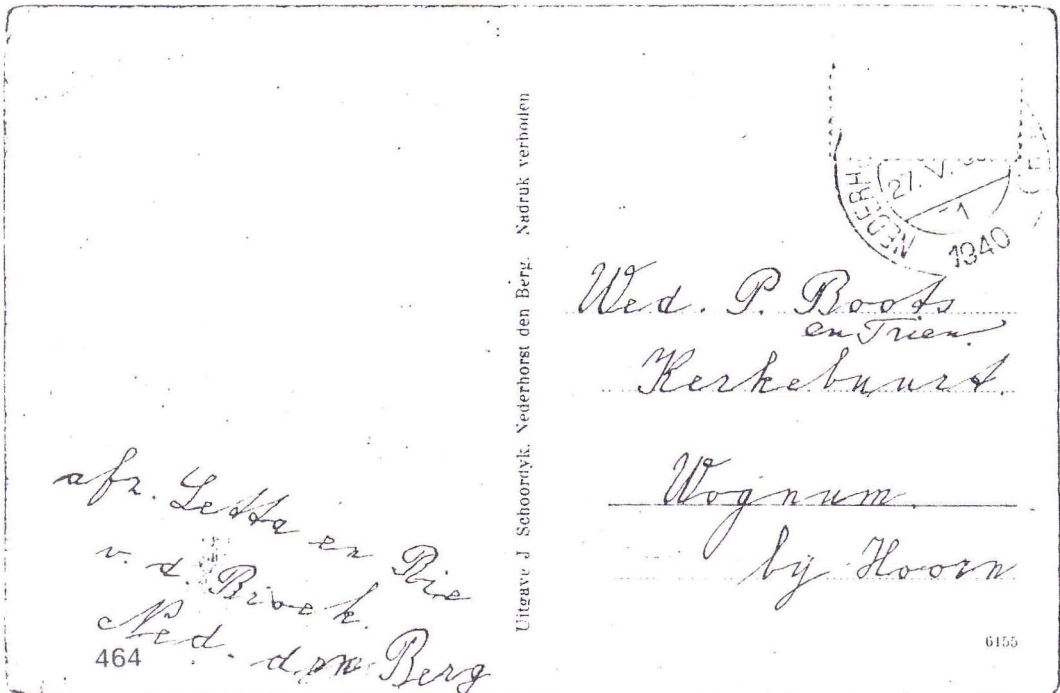 afz. Letta en Rie
v. d. Broek.
Ned. den Berg
464
Uitgave J Schoordyk. Nederhorst den Berg. Nadruk verboden
NEDERH
27. V.
1
1940
Wed. P. Boots
en Trien.
Kerkebuurt.
Wognum.
by Hoorn
6155